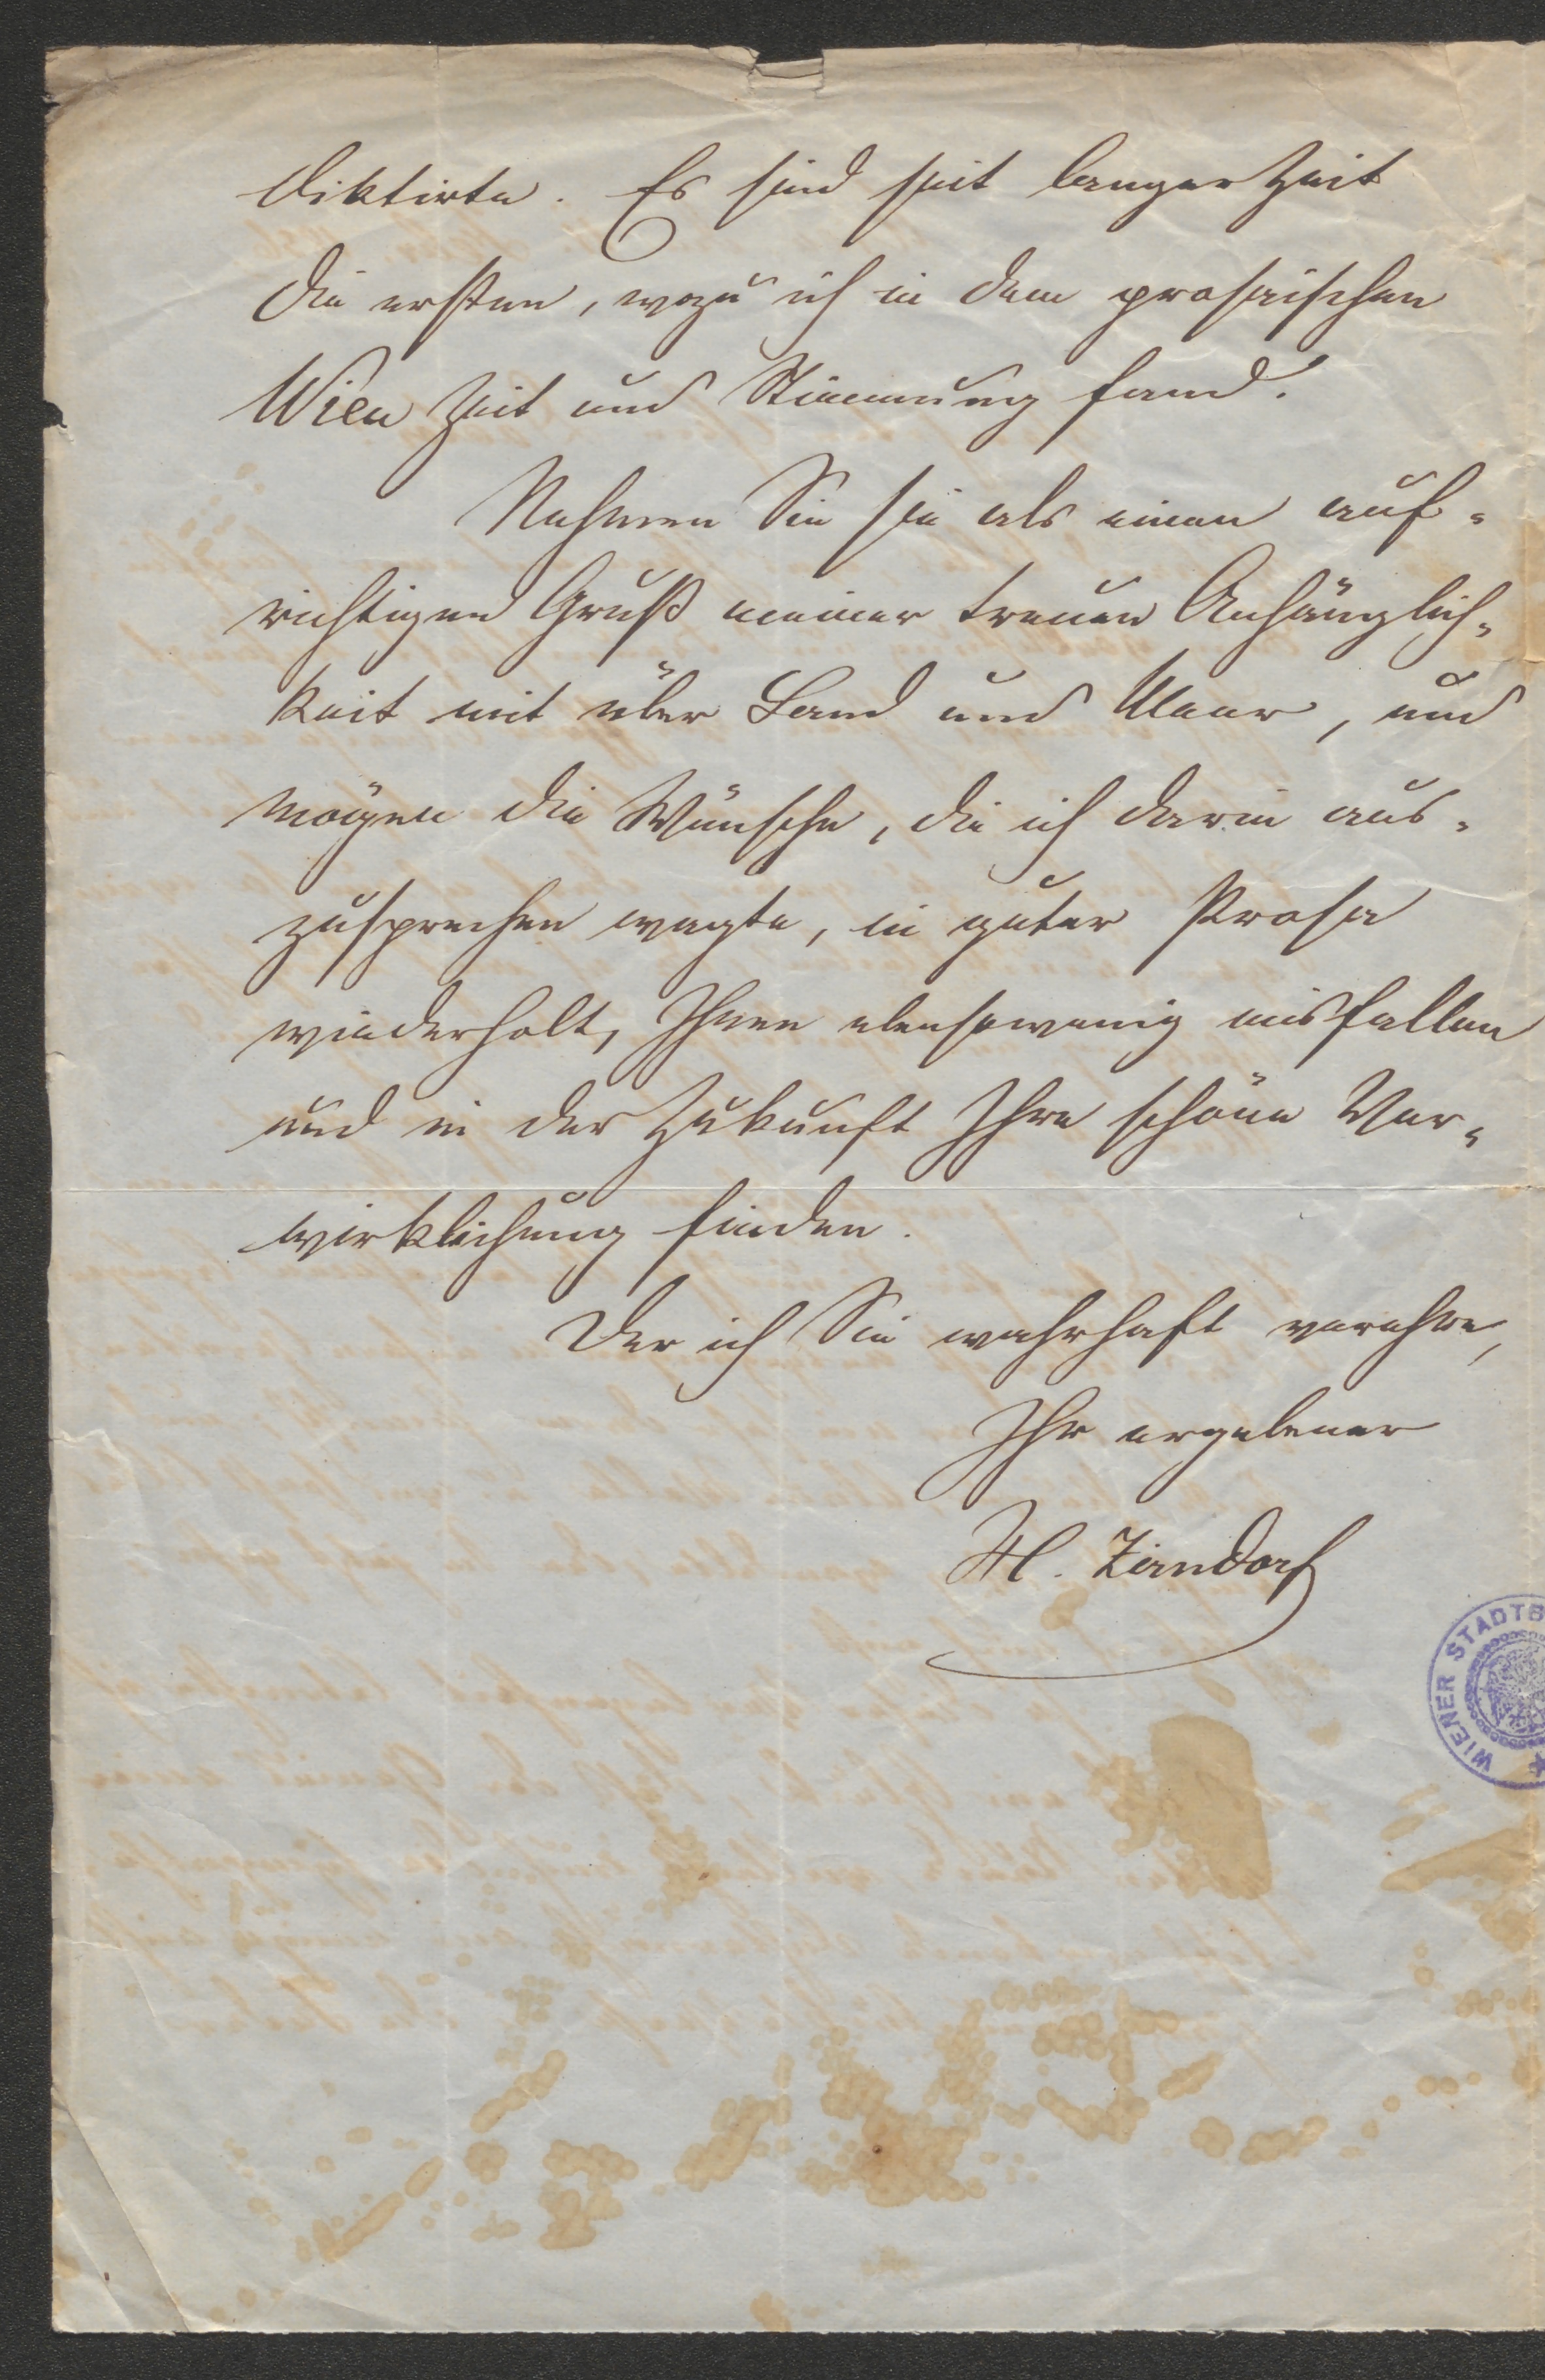 diktirte. Es sind seit langer Zeit
die ersten, wozu ich in dem prosaischen
Wien Zeit und Stimmung fand.
Nehmen Sie sie als einen auf-
richtigen Gruß meiner treuen Anhänglich-
keit mit über Land und Meer, und
mögen die Wünsche, die ich darin aus-
zusprechen wagte, in guter Prosa
wiederholt, Ihnen ebensowenig misfallen
und in der Zukunft Ihre schöne Ver-
wirklichung finden.
Der ich Sie wahrhaft verehre,
Ihr ergebener
H. Zirndorf
WIENER STADTB